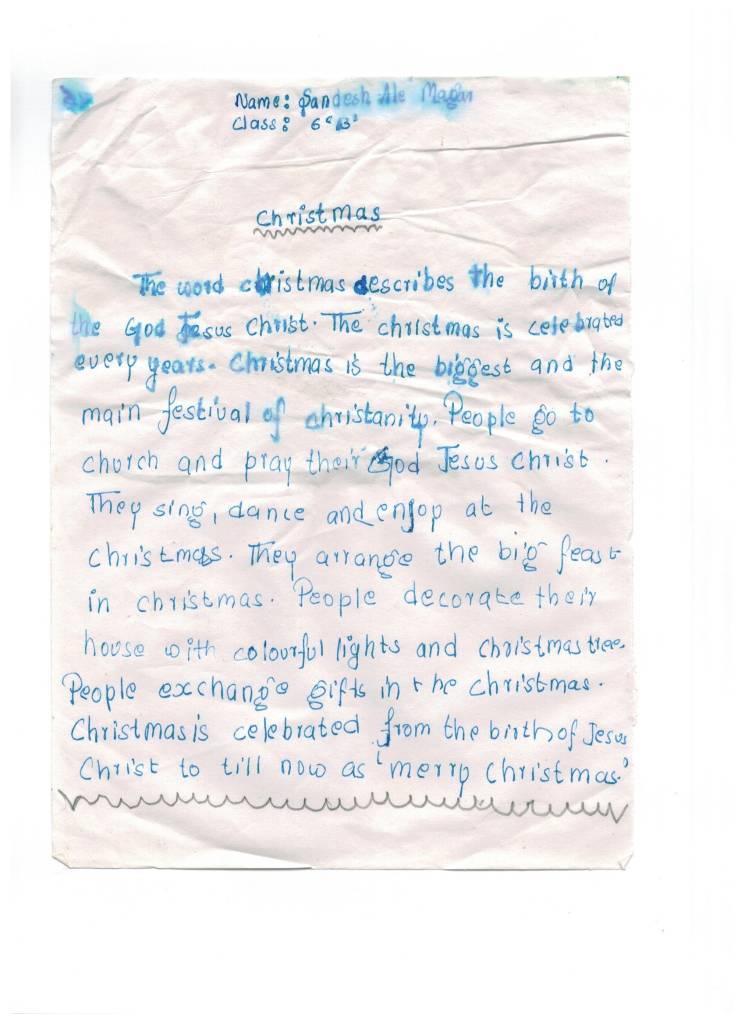 Name: Sandesh Ale Magar
Class: 6 'B'
Christmas
The word christmas describes the birth of
the God Jesus Christ. The christmas is celebrated
every years. Christmas is the biggest and the
main festival of christanity. People go to
church and pray their God Jesus Christ.
They sing, dance and enjoy at the
christmas. They arrange the big feast
in christmas. People decorate their
house with colourful lights and christmas tree.
People exchange gifts in the Christmas.
Christmas is celebrated from the birth of Jesus
Christ to till now as 'merry Christmas.'